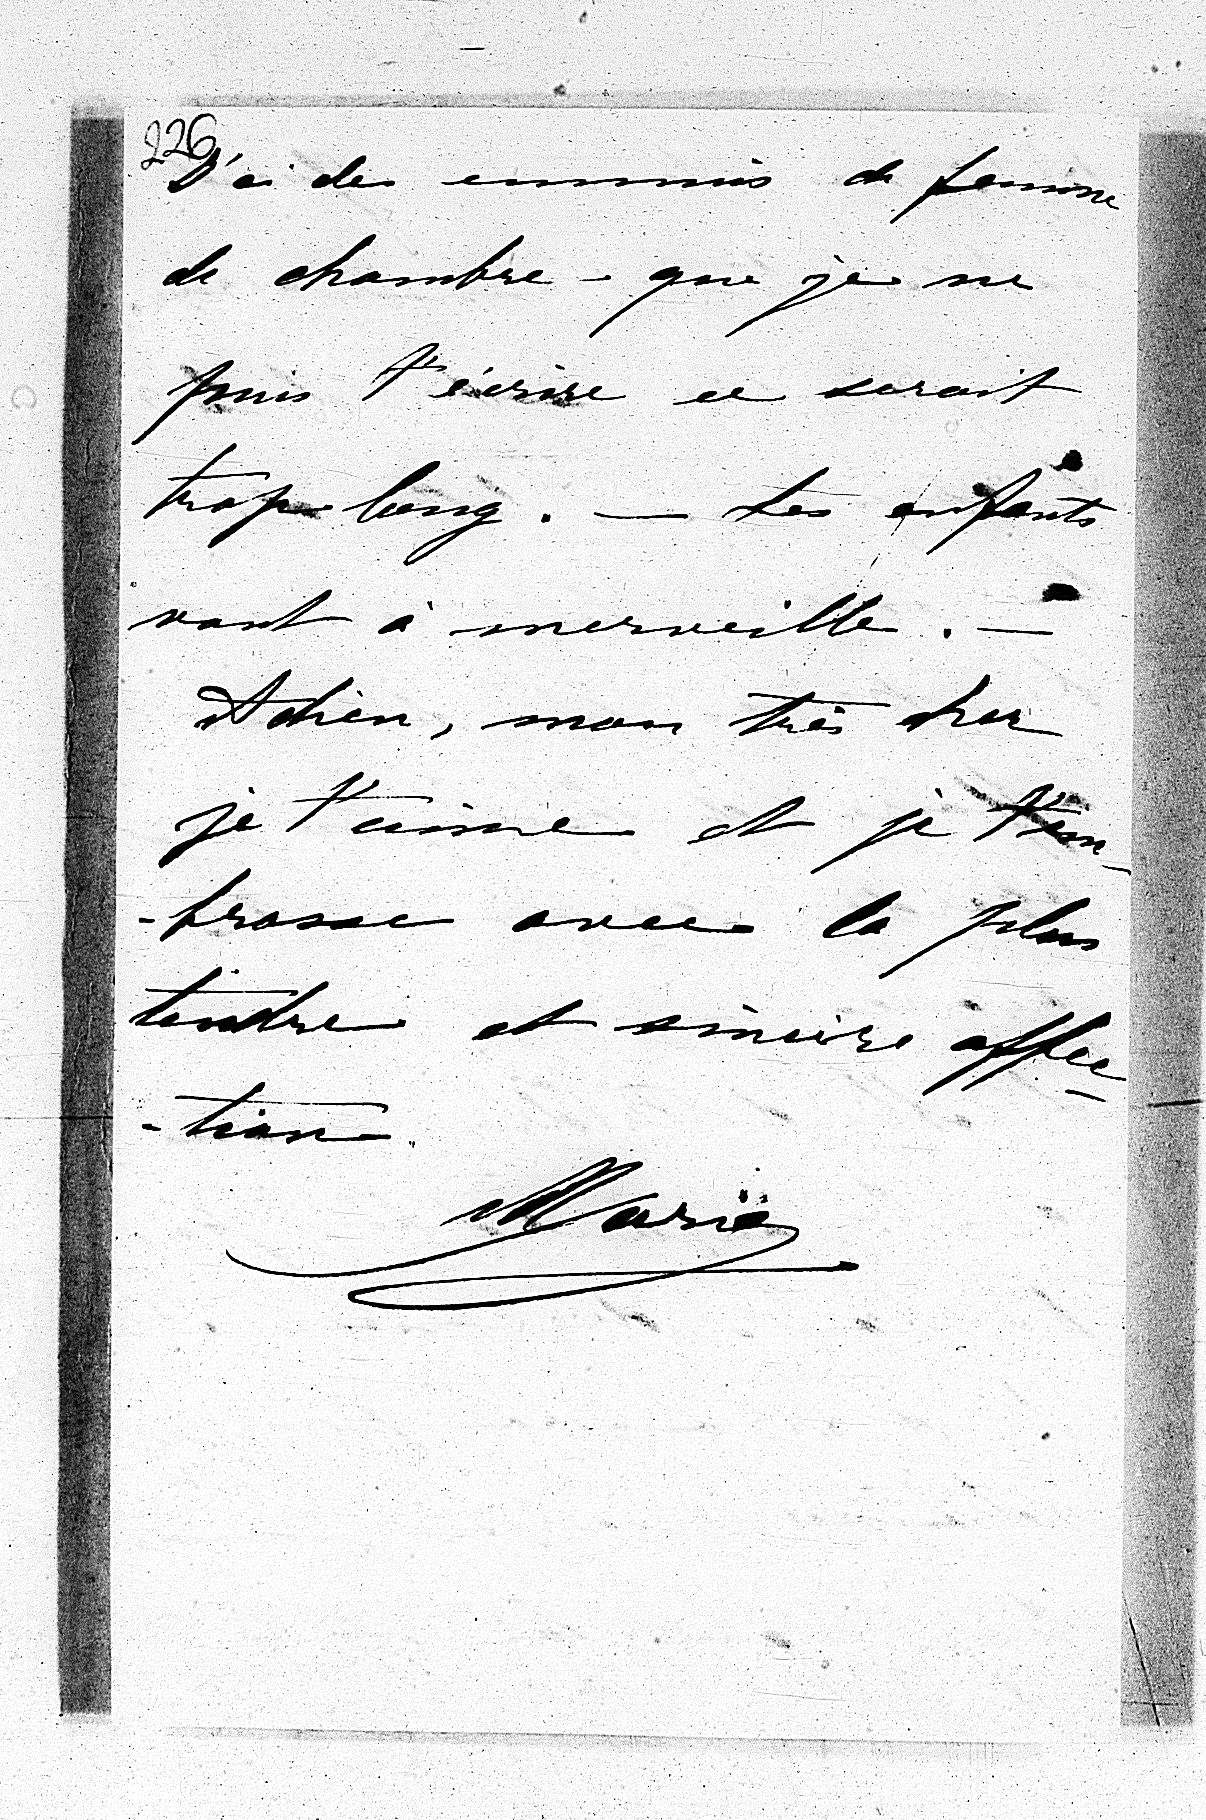 226
J'ai des ennuis de femme
de chambre - que je ne
puis t'écrire ce serait
trop long. — Les enfants
vont à merveille. —
Adieu, mon très cher
je t'aime et je t'em-
-brasse avec la plus
tendre et sincère affec-
-tion.
Marie